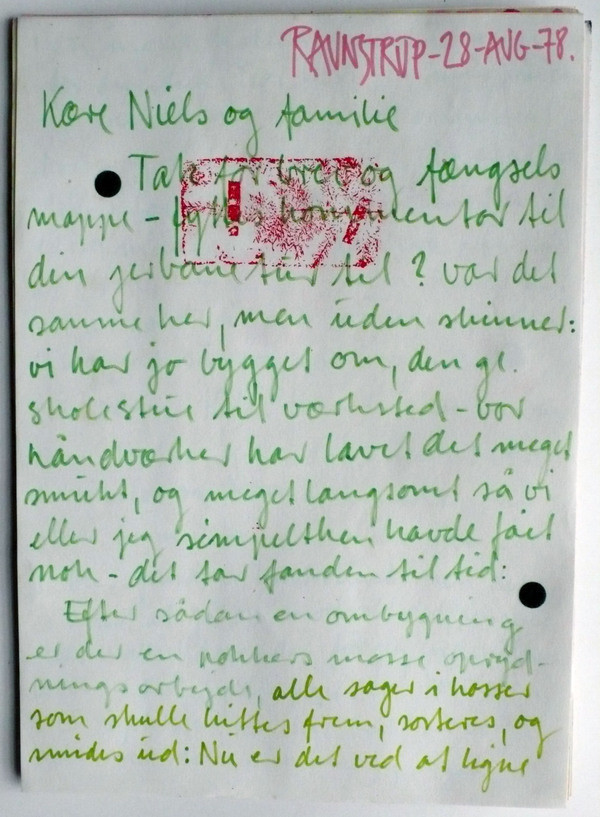 RAVNSTRUP-28-AUG-78.
Kære Niels og familie
Tak for brev og fængsels
mappe - kommentar til
din til? var det
samme her, men uden skinner:
vi har jo bygget om, den gl.
skolestue til værksted - vor
håndværker har lavet det meget
smukt, og meget langsomt så vi
eller jeg simpelthen havde fået
nok - det tar fanden til tid:
Efter sådan en ombygning
er der en pokkers masse opryd-
nings arbejde, alle sager i kasser
som skulle hittes frem, sorteres, og
smides ud: Nu er det ved at ligne